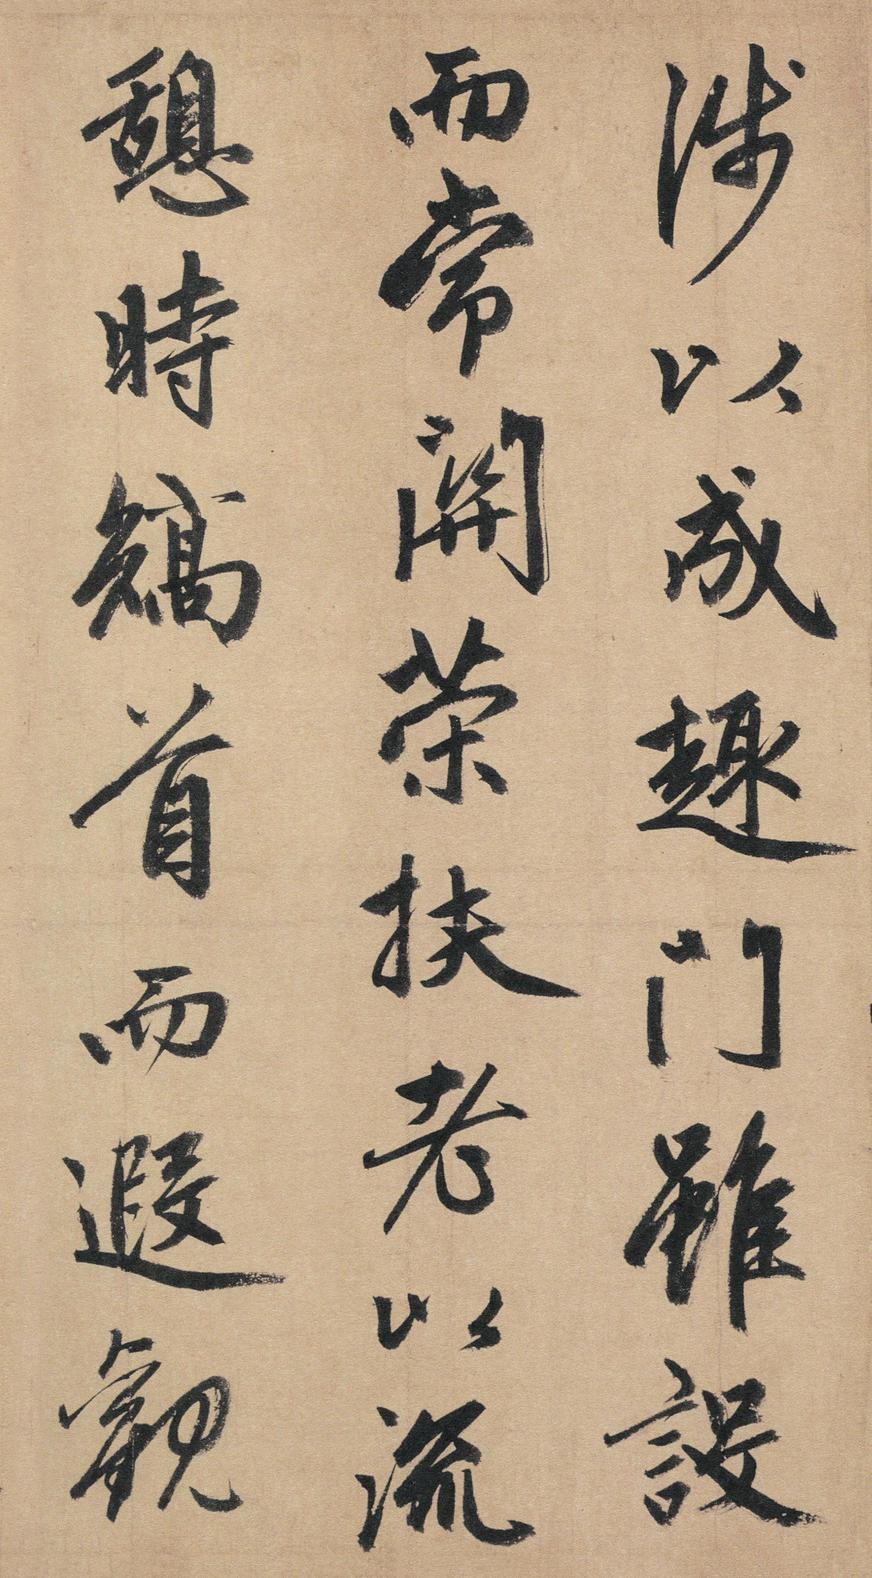 涉以成趣門雖設
而常關策扶老以流
憩時矯首而遐觀